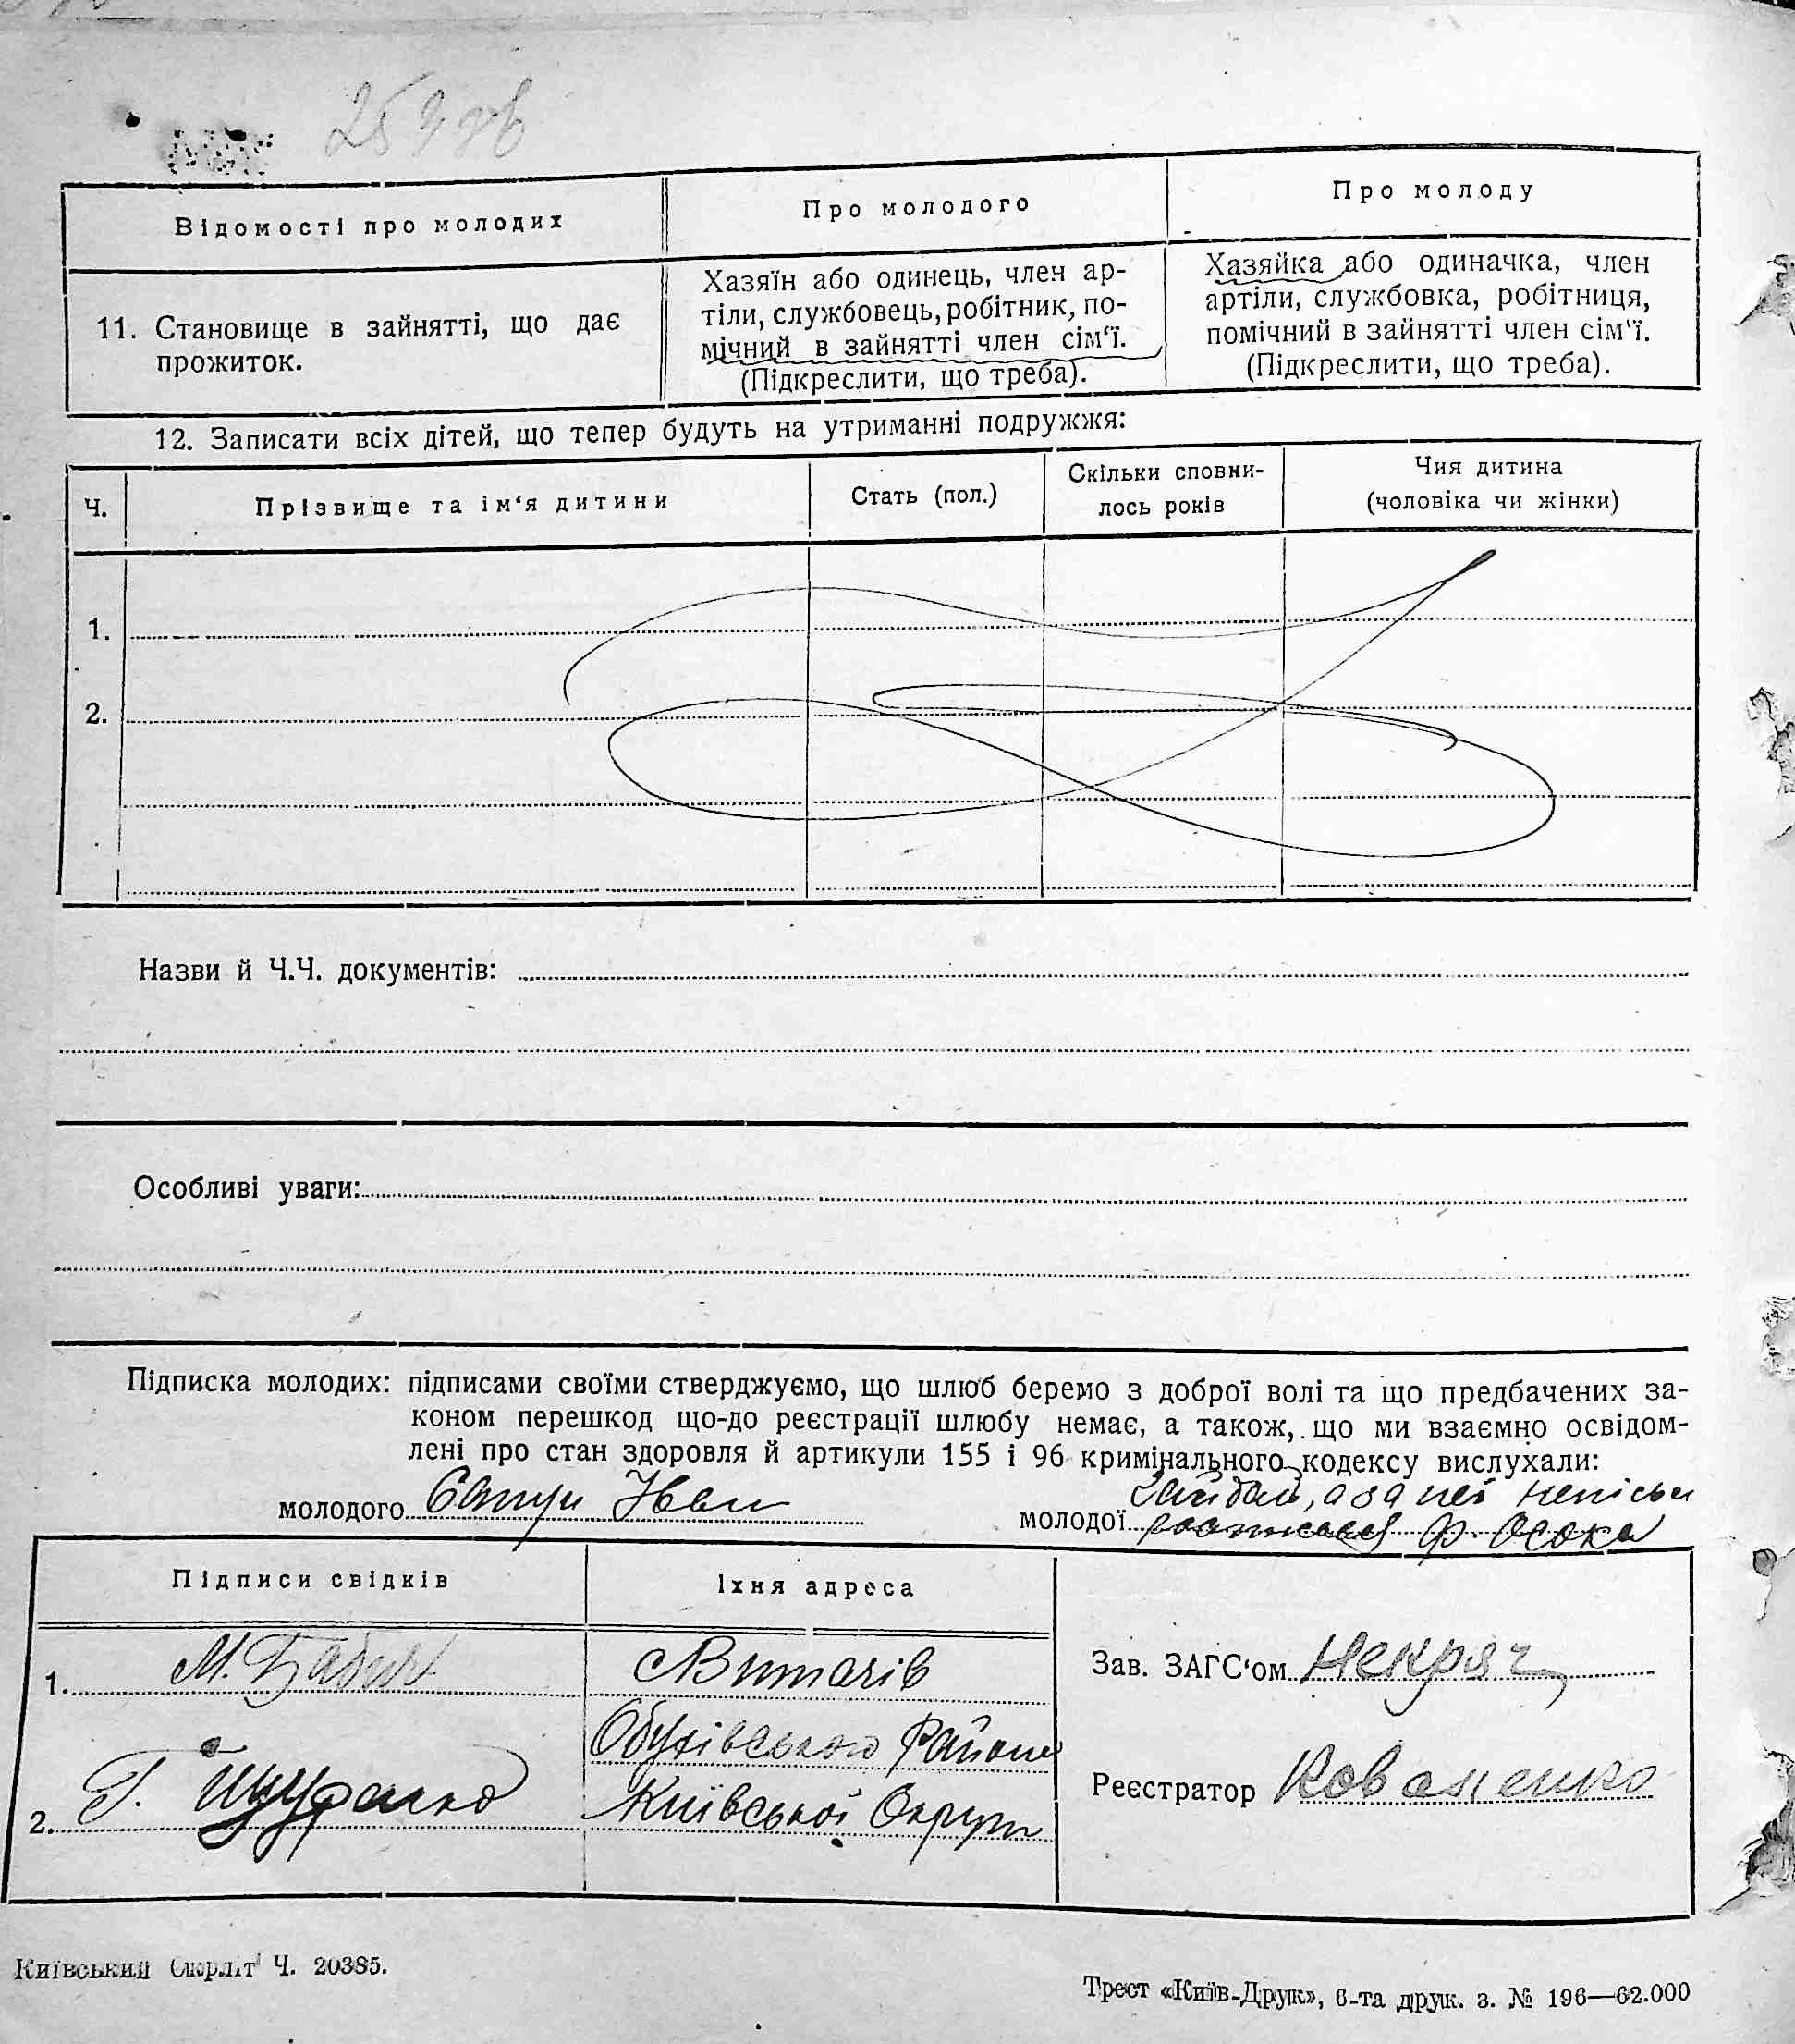 Відомості про молодих
Про молодого
Про молоду
11. Становище в зайнятті, що дає
прожиток.
Хазяїн або одинець, член ар-
тіли, службовець, робітник, по-
мічний в зайнятті член сім‘ї.
(Підкреслити, що треба).
Хазяйка або одиначка, член
артіли, службовка, робітниця,
помічний в зайнятті член сім‘ї.
(Підкреслити, що треба).
12. Записати всіх дітей, що тепер будуть на утриманні подружжя:
Ч.
Прізвище та ім‘я дитини
Стать (пол.)
Скільки сповни-
лось років
Чия дитина
(чоловіка чи жінки)
1.
2.
Назви й Ч.Ч. документів:
Особливі уваги:
Підписка молодих: підписами своїми стверджуємо, що шлюб беремо з доброї волі та що предбачених за-
коном перешкод що-до реєстрації шлюбу немає, а також, що ми взаємно освідом-
лені про стан здоровля й артикули 155 і 96 кримінального кодексу вислухали:
молодого Іван
а за неї
молодої Ф. Осока
Підписи свідків
Їхня адреса
1. М. Бабич
Витачів
Обухівського Району
2. Г. Щуранко
Київської Округи
Зав. ЗАГС‘ом Некряч
Реєстратор Коваленко
Київський Окрліт Ч. 20385.
Трест «Київ-Друк», 6-та друк. з. № 196—62.000